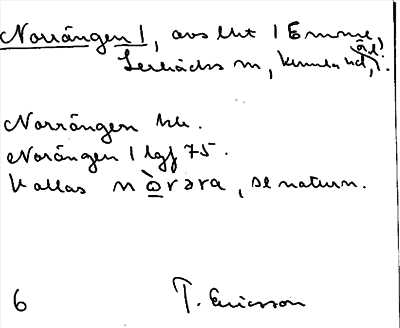 Norrängen 1, avs lht 1 Emme,
Lerbäcks sn, Kumla hd, ö.l.
Norrängen hk.
Norängen 1 lgf 75.
Kallas nò̱rəra, se naturn.
6 T. Ericsson